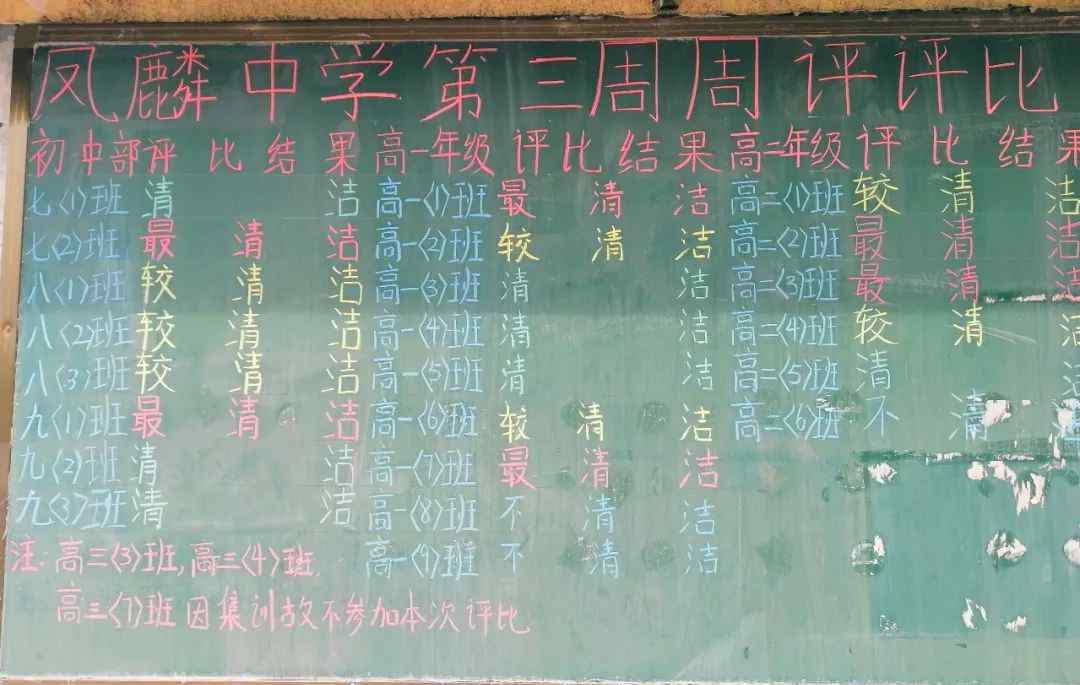 凤麟中学第三周周评评比
初中部评比结果 高一年级评比结果 高二年级评比结果
七(1)班 清洁 高一(1)班 最清洁 高二(1)班 较清洁
七(2)班 最清洁 高一(2)班 较清洁 高二(2)班 最清洁
八(1)班 较清洁 高一(3)班 清洁 高二(3)班 最清洁
八(2)班 较清洁 高一(4)班 清洁 高二(4)班 较清洁
八(3)班 较清洁 高一(5)班 清洁 高二(5)班 清洁
九(1)班 最清洁 高一(6)班 较清洁 高二(6)班 不清洁
九(2)班 清洁 高一(7)班 最清洁
九(3)班 清洁 高一(8)班 不清洁
注:高三(3)班,高三(4)班, 高一(9)班 不清洁
高三(7)班因集训故不参加本次评比